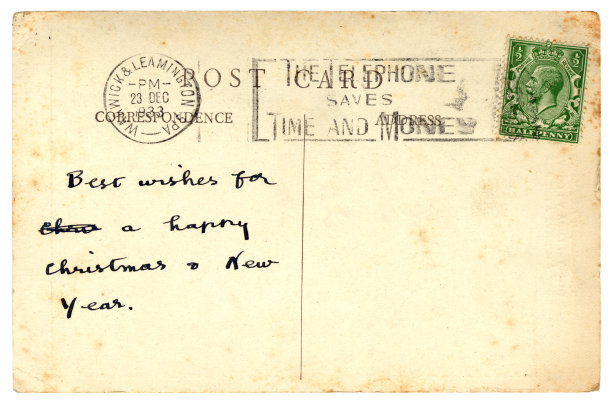 POST CARD
WARWICK & LEAMINGTON SPA
-PM-
23 DEC
1933
THE TELEPHONE
SAVES
TIME AND MONEY
CORRESPONDENCE
ADDRESS
½ ½
HALFPENNY
Best wishes for
a happy
Christmas & New
Year.